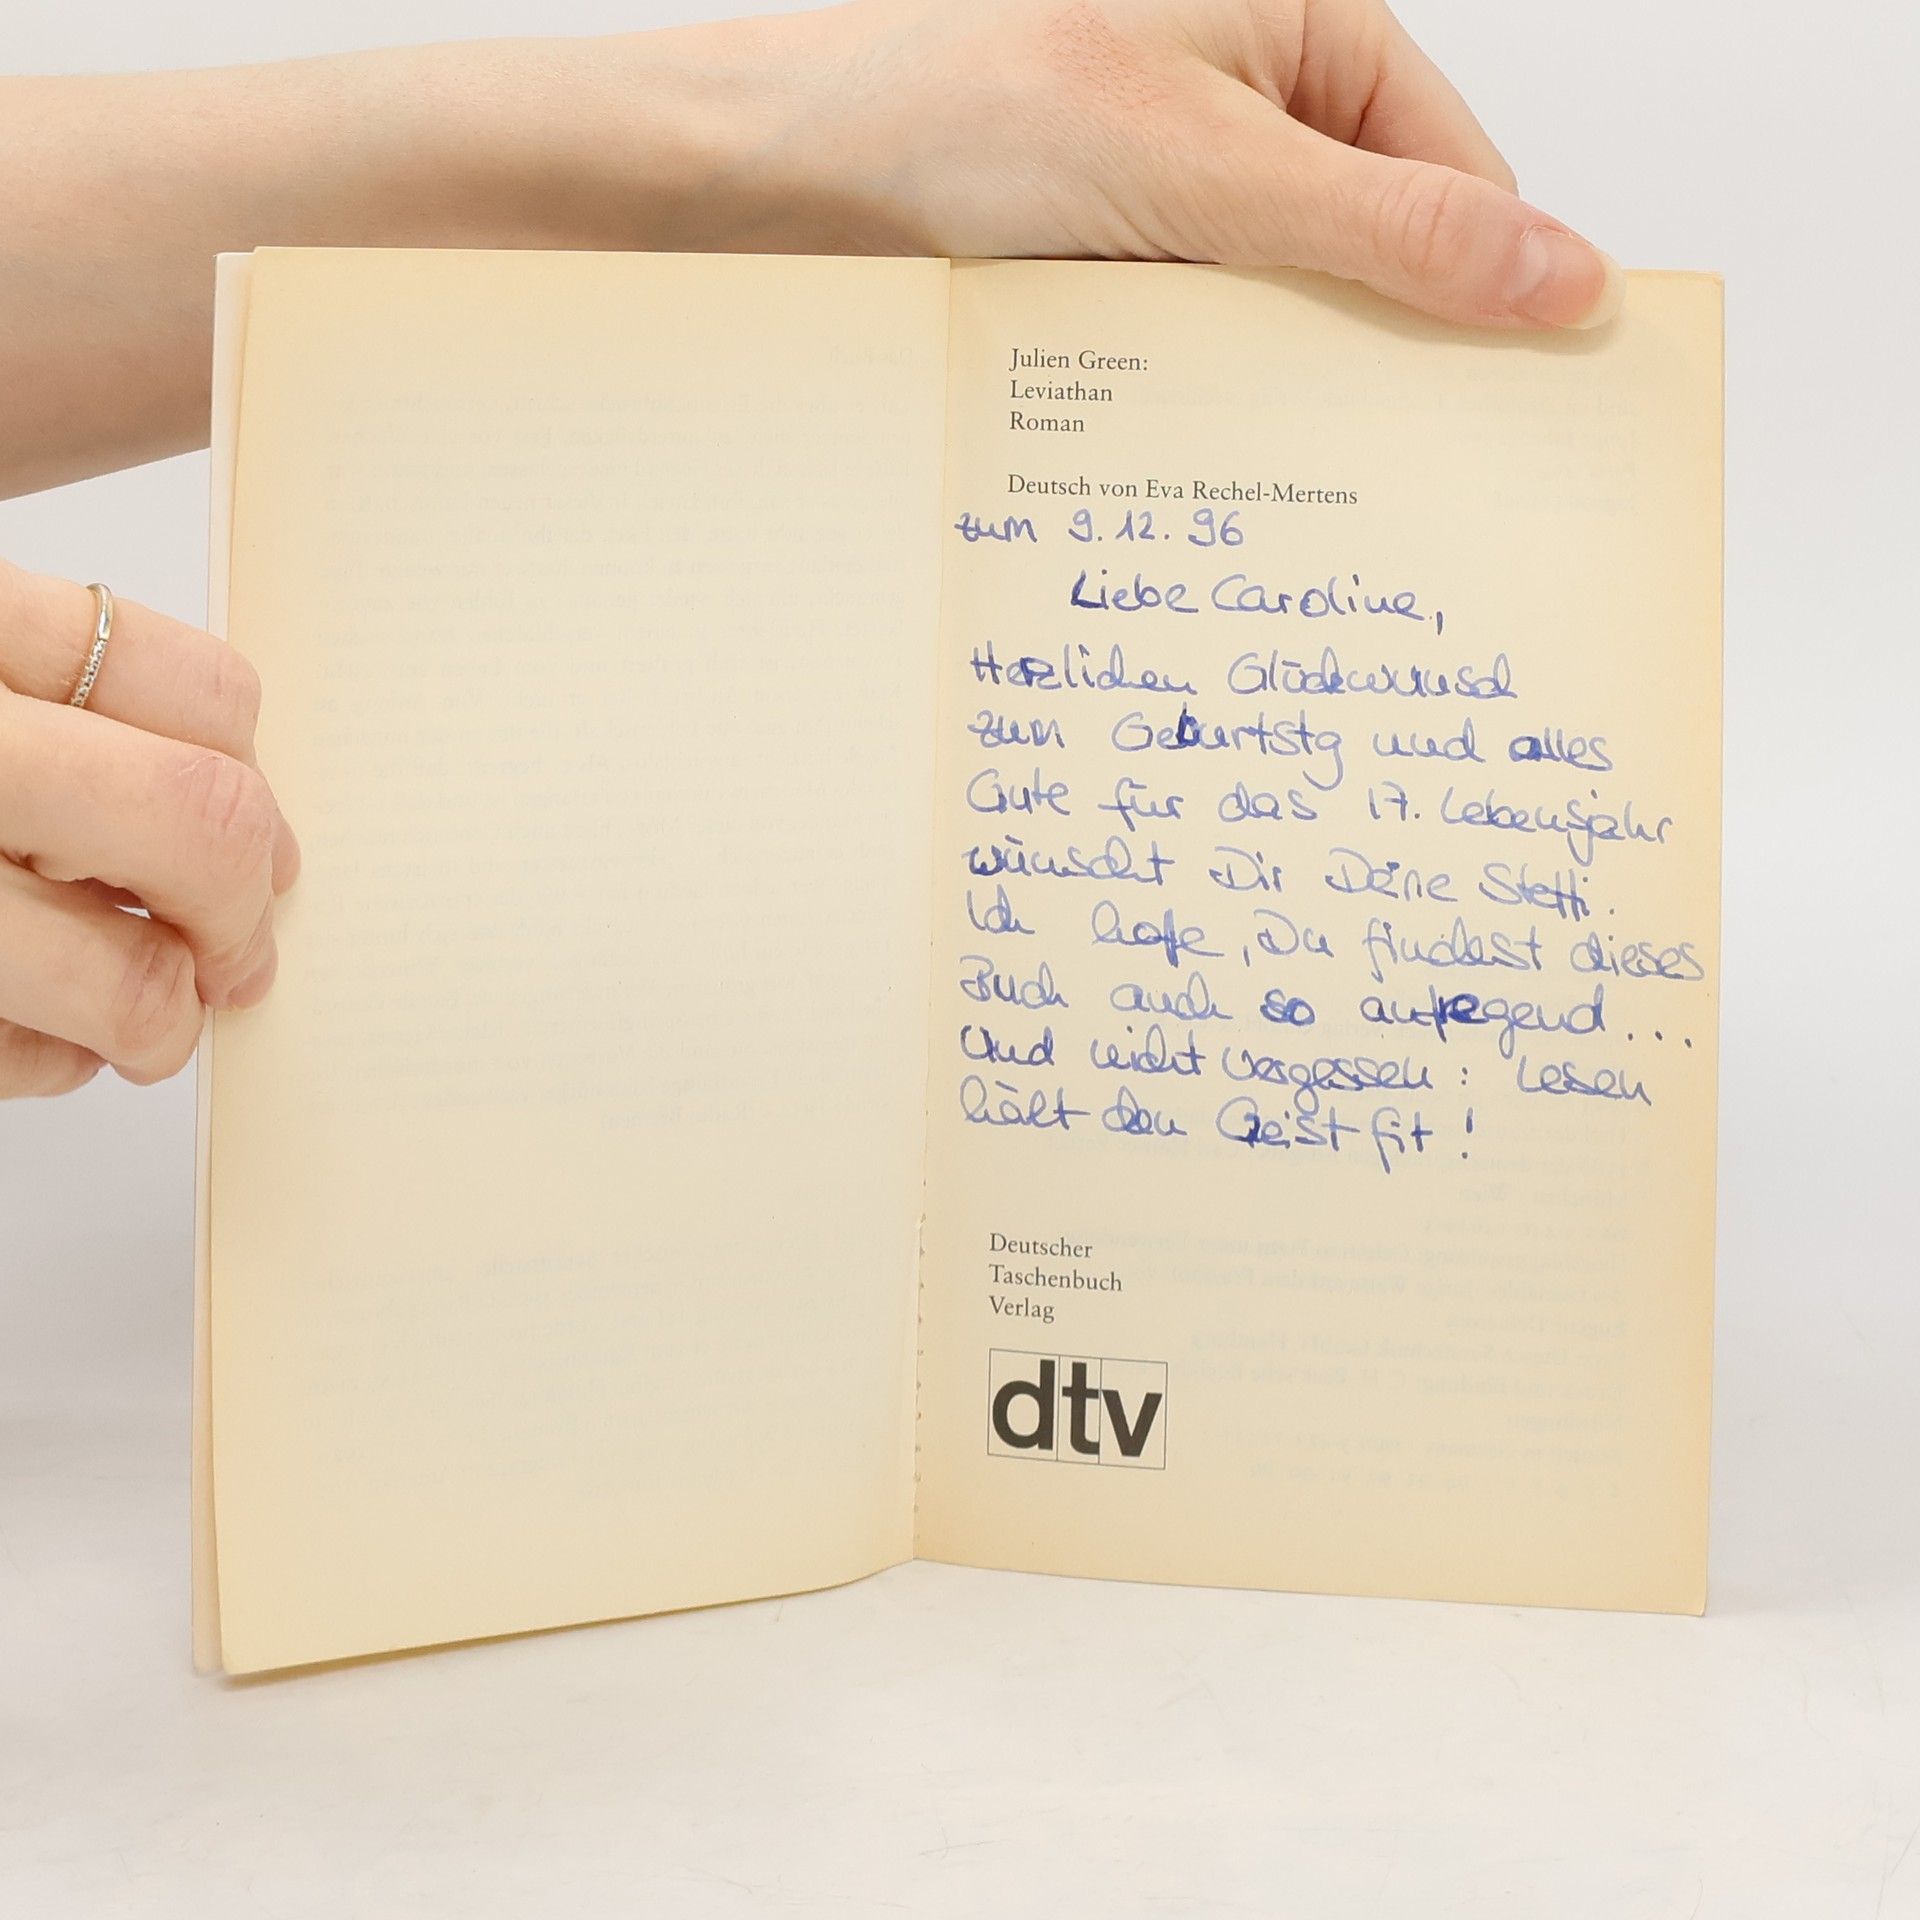 Julien Green:
Leviathan
Roman
Deutsch von Eva Rechel-Mertens
zum 9.12.96
Liebe Caroline,
Herzlichen Glückwunsch
zum Geburtstg und alles
Gute für das 17. Lebensjahr
wünscht Dir Deine Steffi.
Ich hoffe, Du findest dieses
Buch auch so aufregend...
Und nicht vergessen: Lesen
hält den Geist fit!
Deutscher
Taschenbuch
Verlag
dtv